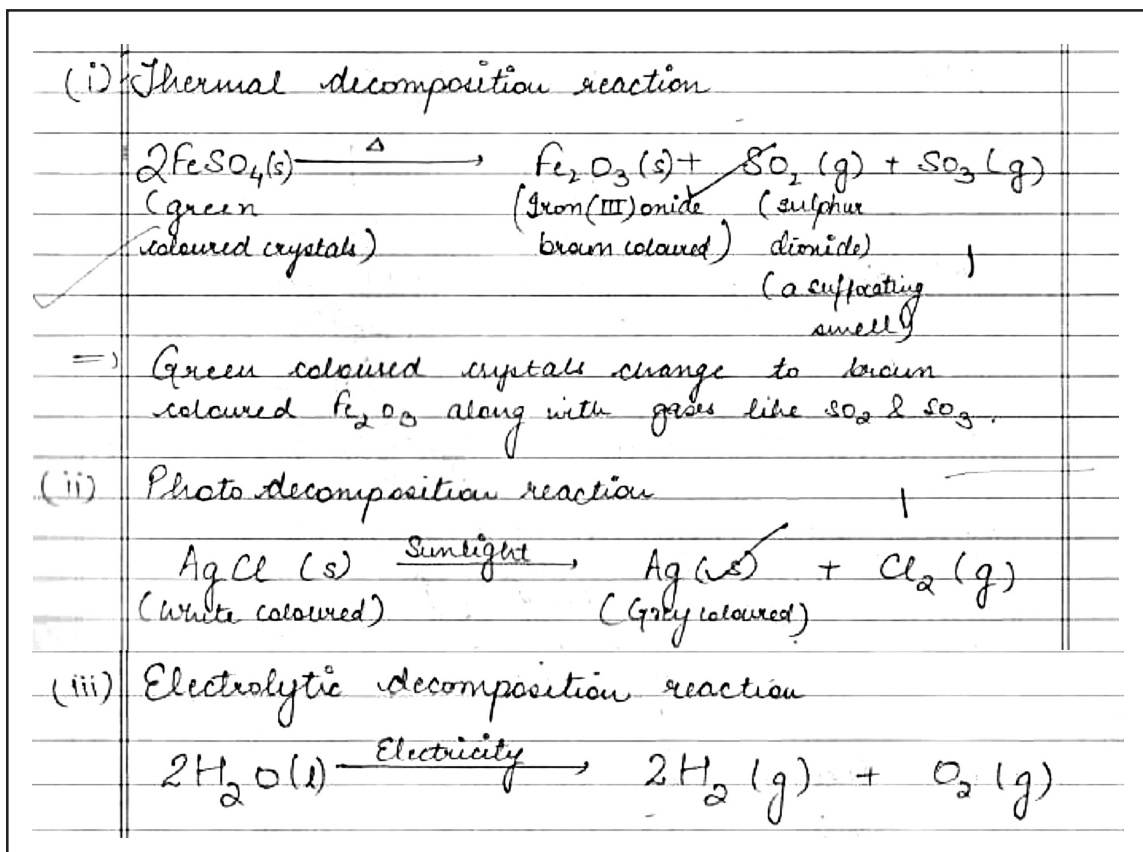 (i) Thermal decomposition reaction
Δ
2FeSO₄(s) ⟶ Fe₂O₃(s) + SO₂(g) + SO₃(g)
(green (Iron(III) onide (sulphur
coloured crystals) brown coloured) dionide)
(a suffocating
smell)
⇒ Green coloured crystals change to brown
coloured Fe₂O₃ along with gases like SO₂ & SO₃.
(ii) Photo decomposition reaction
Sunlight
AgCl (s) ⟶ Ag(s) + Cl₂(g)
(White coloured) (Grey coloured)
(iii) Electrolytic decomposition reaction
Electricity
2H₂O(l) ⟶ 2H₂(g) + O₂(g)